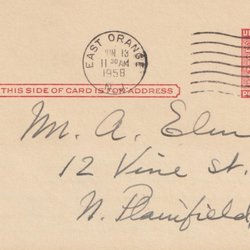 EAST ORANGE
13
11 30 AM
1958
N.J.
THIS SIDE OF CARD IS FOR ADDRESS
Mr. A. Elm
12 Vine St.
N. Plainfield